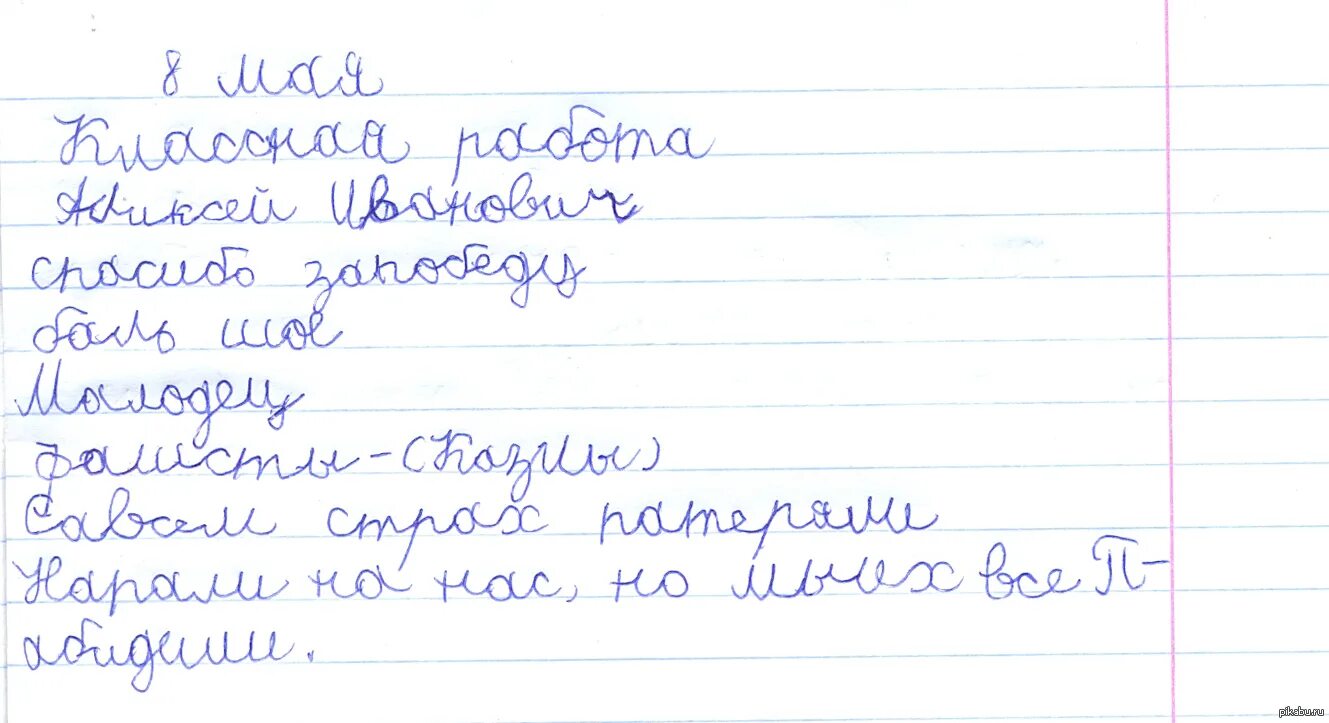 8 мая
Классная работа
Аликсей Иванович
спасибо запобеду
баль шое
Малодец
фашисты-(Казлы)
Савсем страх патеряли
Нарали на нас, но мы их все П-
абидили.
pikabu.ru